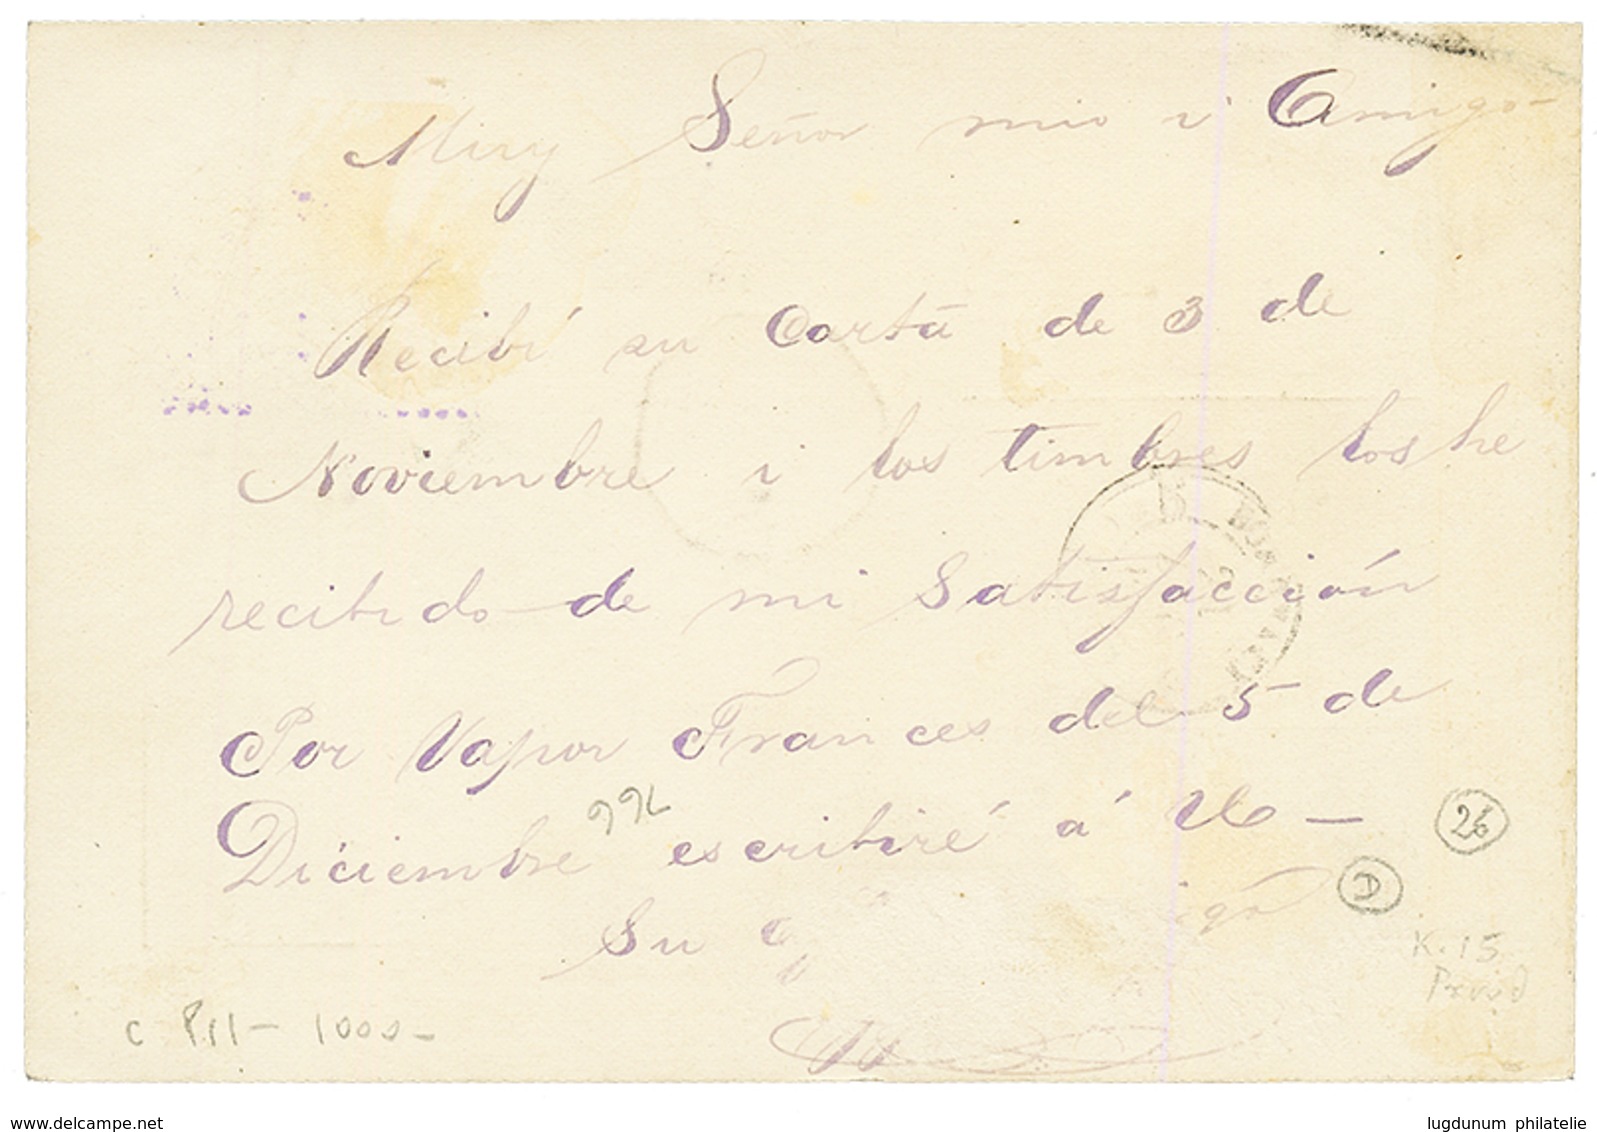 Muy Señor mio i Amigo
Recibí su Carta de 3 de
Noviembre i los timbres los he
recibido de mi Satisfacción
Por Vapor Frances del 5 de
Diciembre escribiré á
Su
26
D
K.15
C P.11 - 1000 -
delcampe.net
lugdunum philatelie